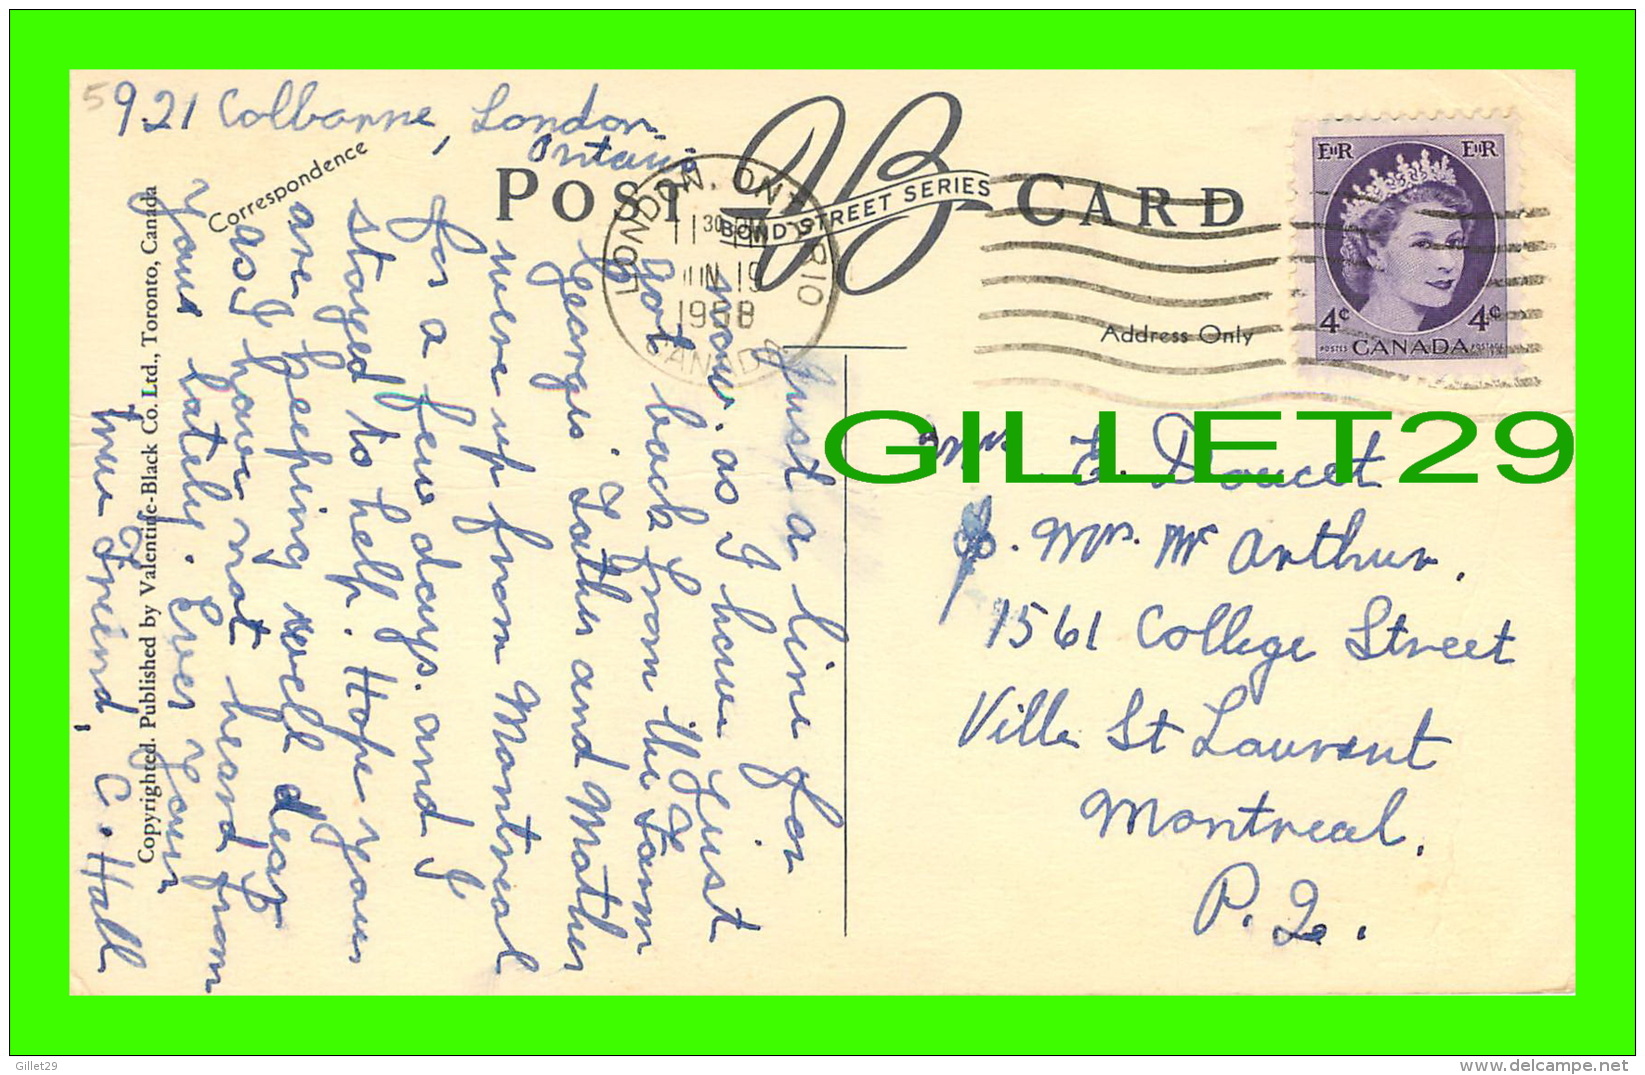 5
921 Colborne, London
Ontario
Correspondence
POST CARD
BOND STREET SERIES
LONDON, ONTARIO
11 30 PM
JUN 19
1958
CANADA
EIIR EIIR
4¢ 4¢
POSTES CANADA POSTAGE
Address Only
GILLET29
Just a line for
now. as I have Just
got back from the Farm
to
Georges. Father and Mother
were up from Montreal
for a few days. and I
stayed to help. Hope your
are keeping well dear
as I have not heard from
your lately. Ever your
true Friend,
C. Hall
Mrs E. Doucet
Mrs. Mc Arthur.
1561 College Street
Ville St Laurent
Montreal.
P. Q.
Copyrighted. Published by Valentine-Black Co. Ltd., Toronto, Canada
Gillet29
www.delcampe.net